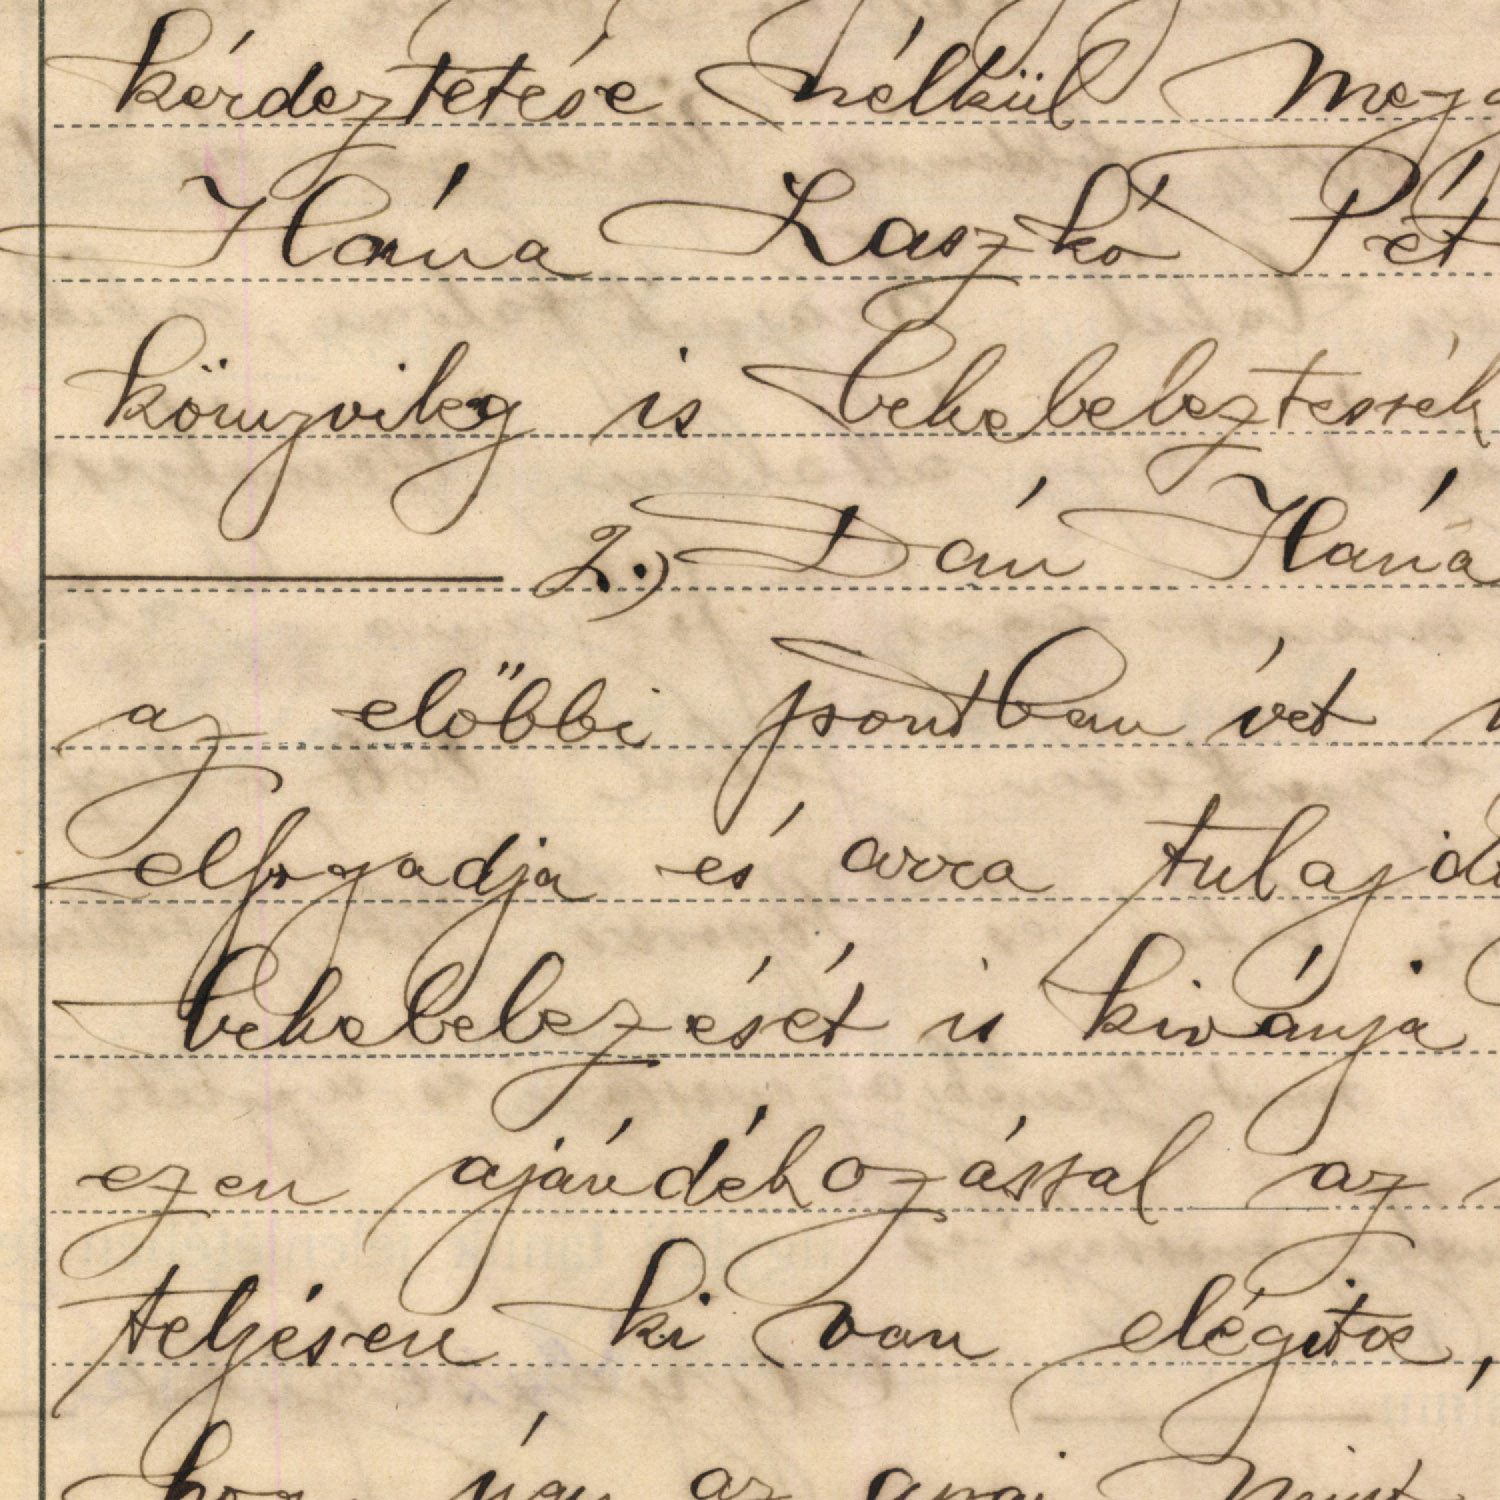 kérdeztetése nélkül meg
Hána Laszkó Pét
könyvileg is bekebeleztessék
2.) Dán Hána
az előbbi pontban vét
elfogadja és arra tulajdo
bekebelezését is kivánja
ezen ajándékozással az
teljésen ki van elégitve,
hog úgy az apai mint